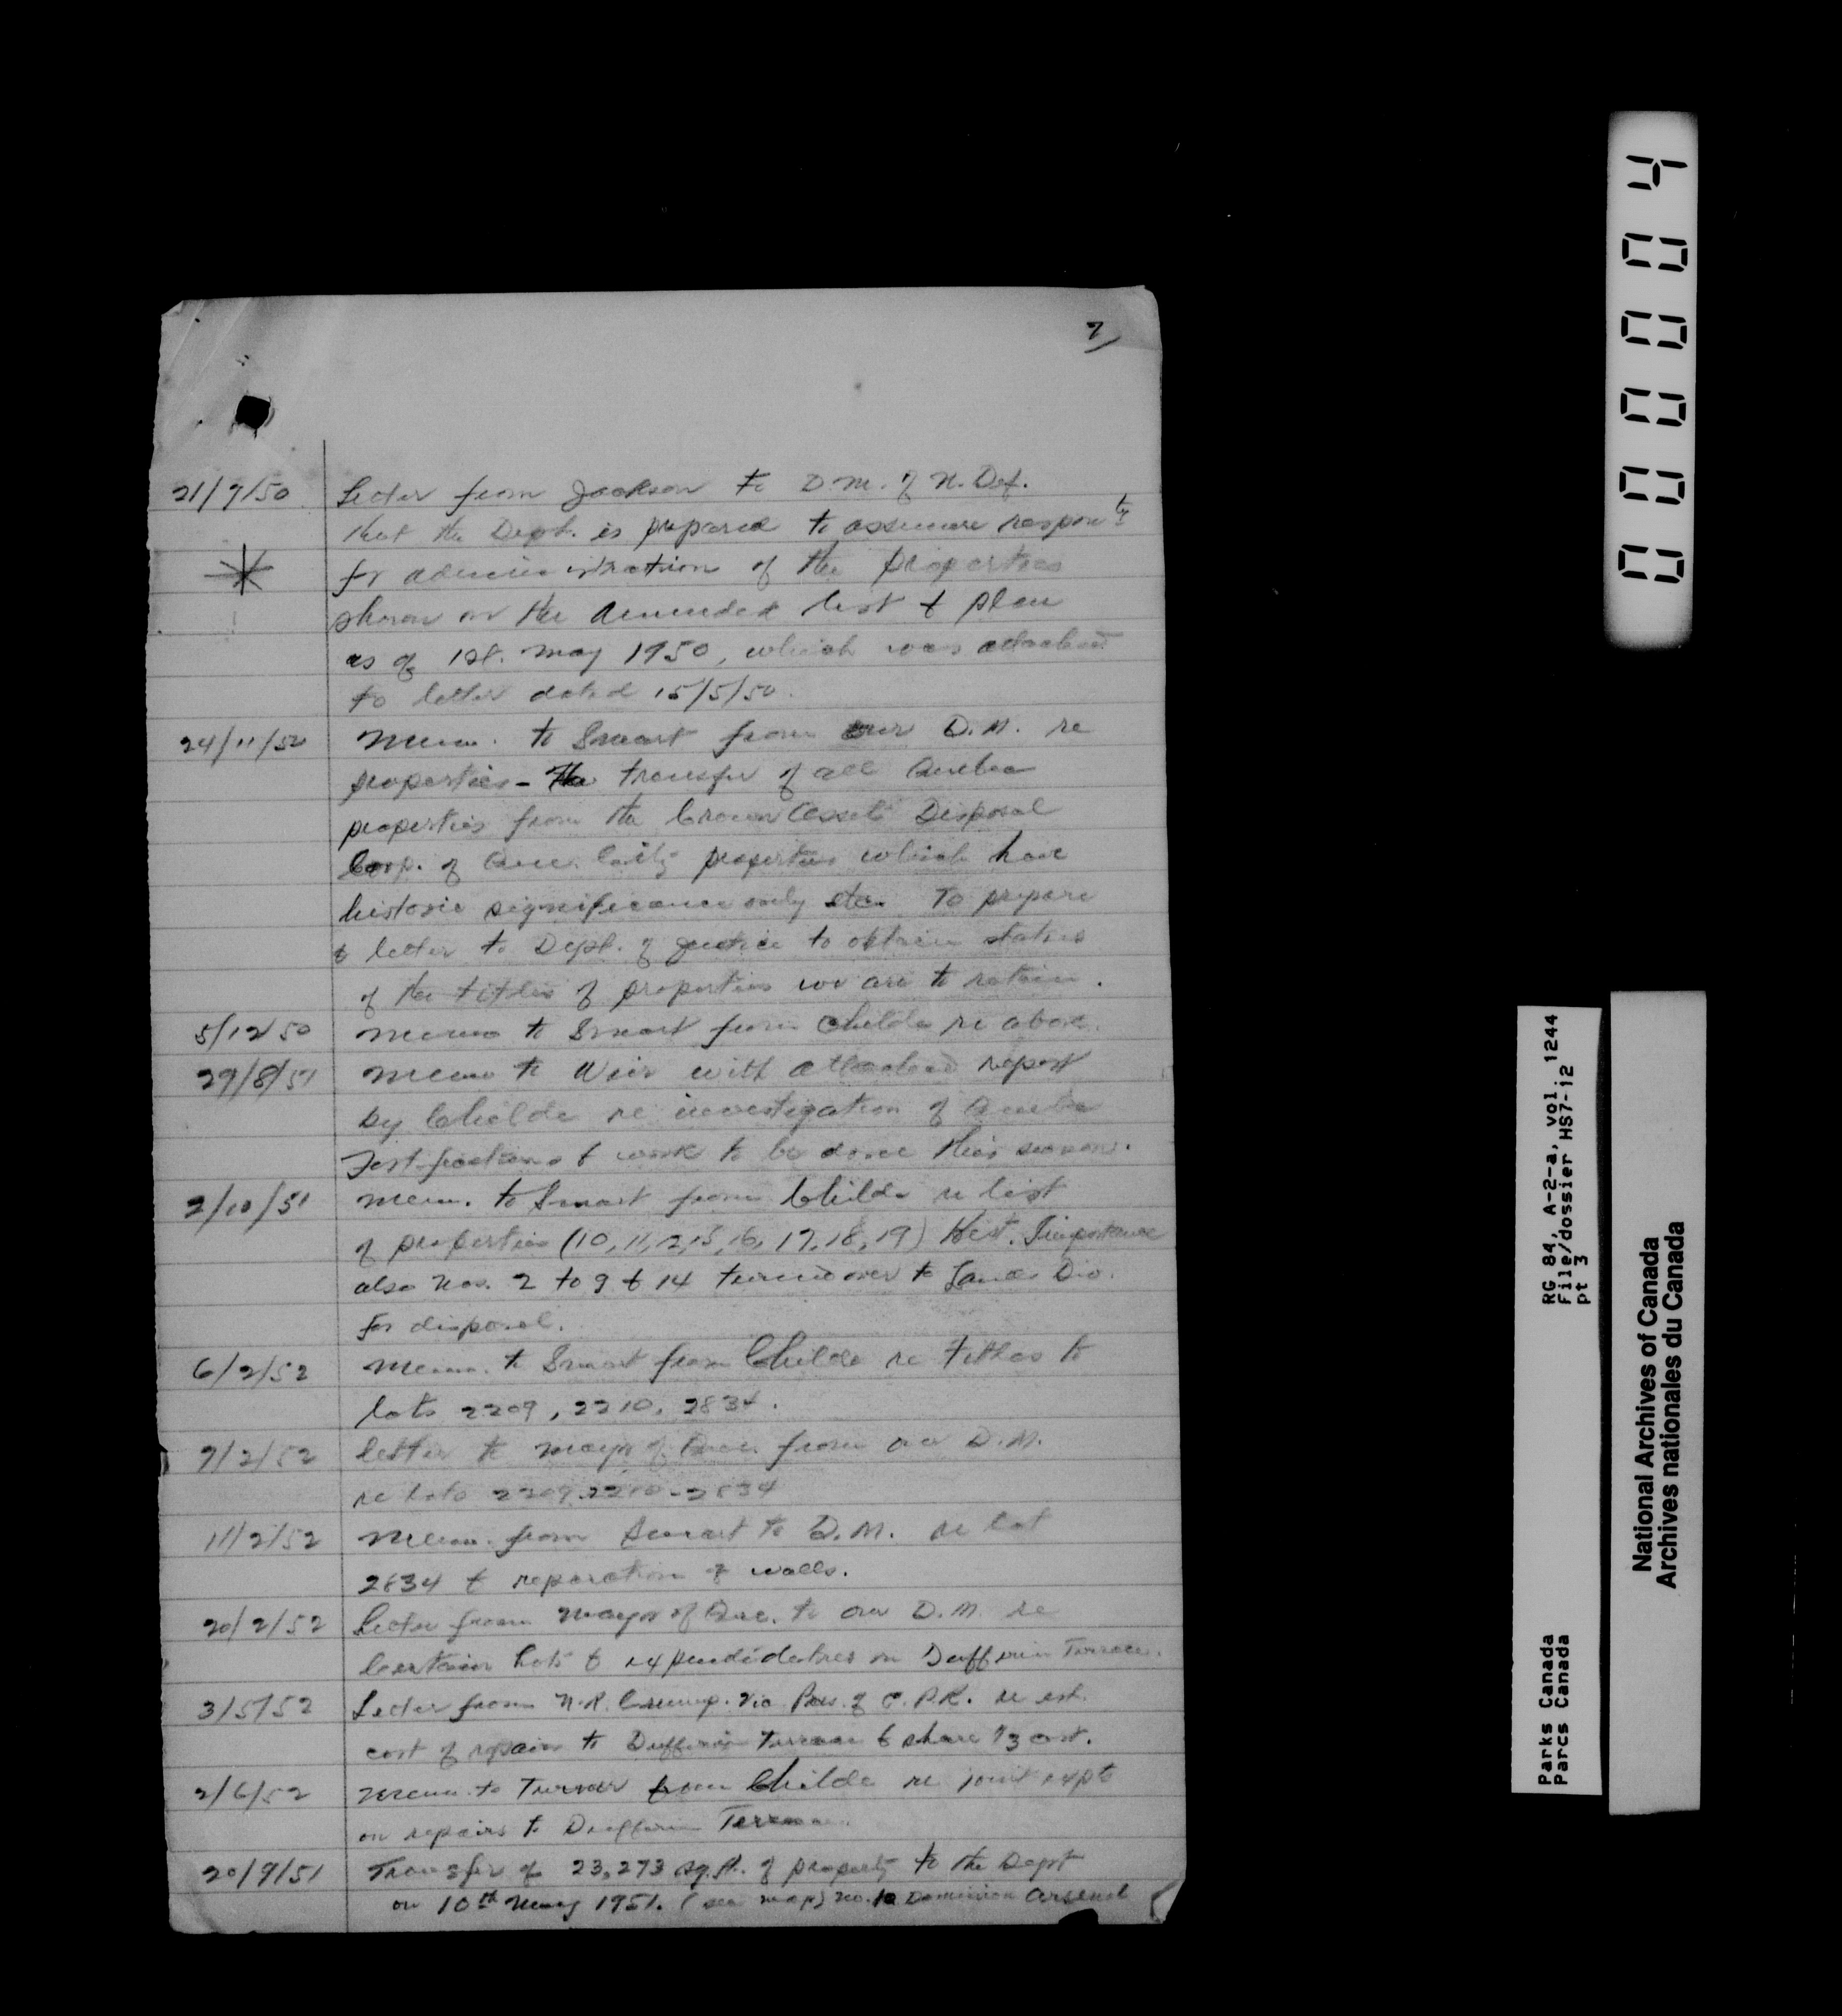 2/
21/9/50 Letter from Jackson to D.M. of N. Def.
that the Dept. is prepared to assume respon ty
for administration of the properties
shown on the amended list & plan
as of 1st. May 1950, which was attached
to letter dated 15/5/50.
24/11/50 Memo. to Smart from our D.M. re
properties - The transfer of all Quebec
properties from the Crown Assets Disposal
Corp. of Que. City properties which have
historic significance only etc. To prepare
letter to Dept. of Justice to obtain status
of the titles of properties we are to retain.
5/12/50 Memo to Smart from Childe re above.
29/8/51 Memo to Weir with attached report
by Childe re investigation of Quebec
Fortifications & work to be done this season.
2/10/51 Mem. to Smart from Childe re list
of properties (10, 11, 12, 15, 16, 17, 18, 19) Hist. Importance
also Nos. 2 to 9 & 14 turned over to Lands Div.
for disposal.
6/2/52 Memo. to Smart from Childe re titles to
lots 2209, 2210, 2834.
7/2/52 letter to Mayor of Quec. from our D.M.
re lots 2209-2210-2834
11/2/52 Memo. from Smart to D.M. re lot
2834 & reparation of walls.
20/2/52 Letter from Mayor of Quec. to our D.M. re
Certain lots & expendidtures on Dufferin Terrace.
3/5/52 Letter from N.R. Crump. Vic. Pres. of C.P.R. re est.
cost of repairs to Dufferin Terrace & share 1/3 cost.
2/6/52 Memo. to Turner from Childe re joint expts
on repairs to Dufferin Terrace.
20/9/51 Transfer of 23,273 sq. ft. of property to the Dept
on 10th May 1951. (see map) no. 10 Dominion Arsenal
000004
RG 84, A-2-a, vol. 1244
File/dossier HS7-12
pt 3
Parks Canada
Parcs Canada
National Archives of Canada
Archives nationales du Canada